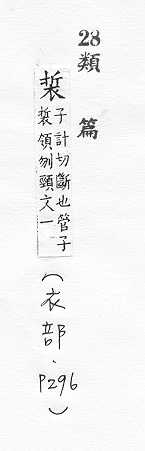 28
類篇
裚
子計切斷也管子
裚領刎頸文一
(衣部．P296)